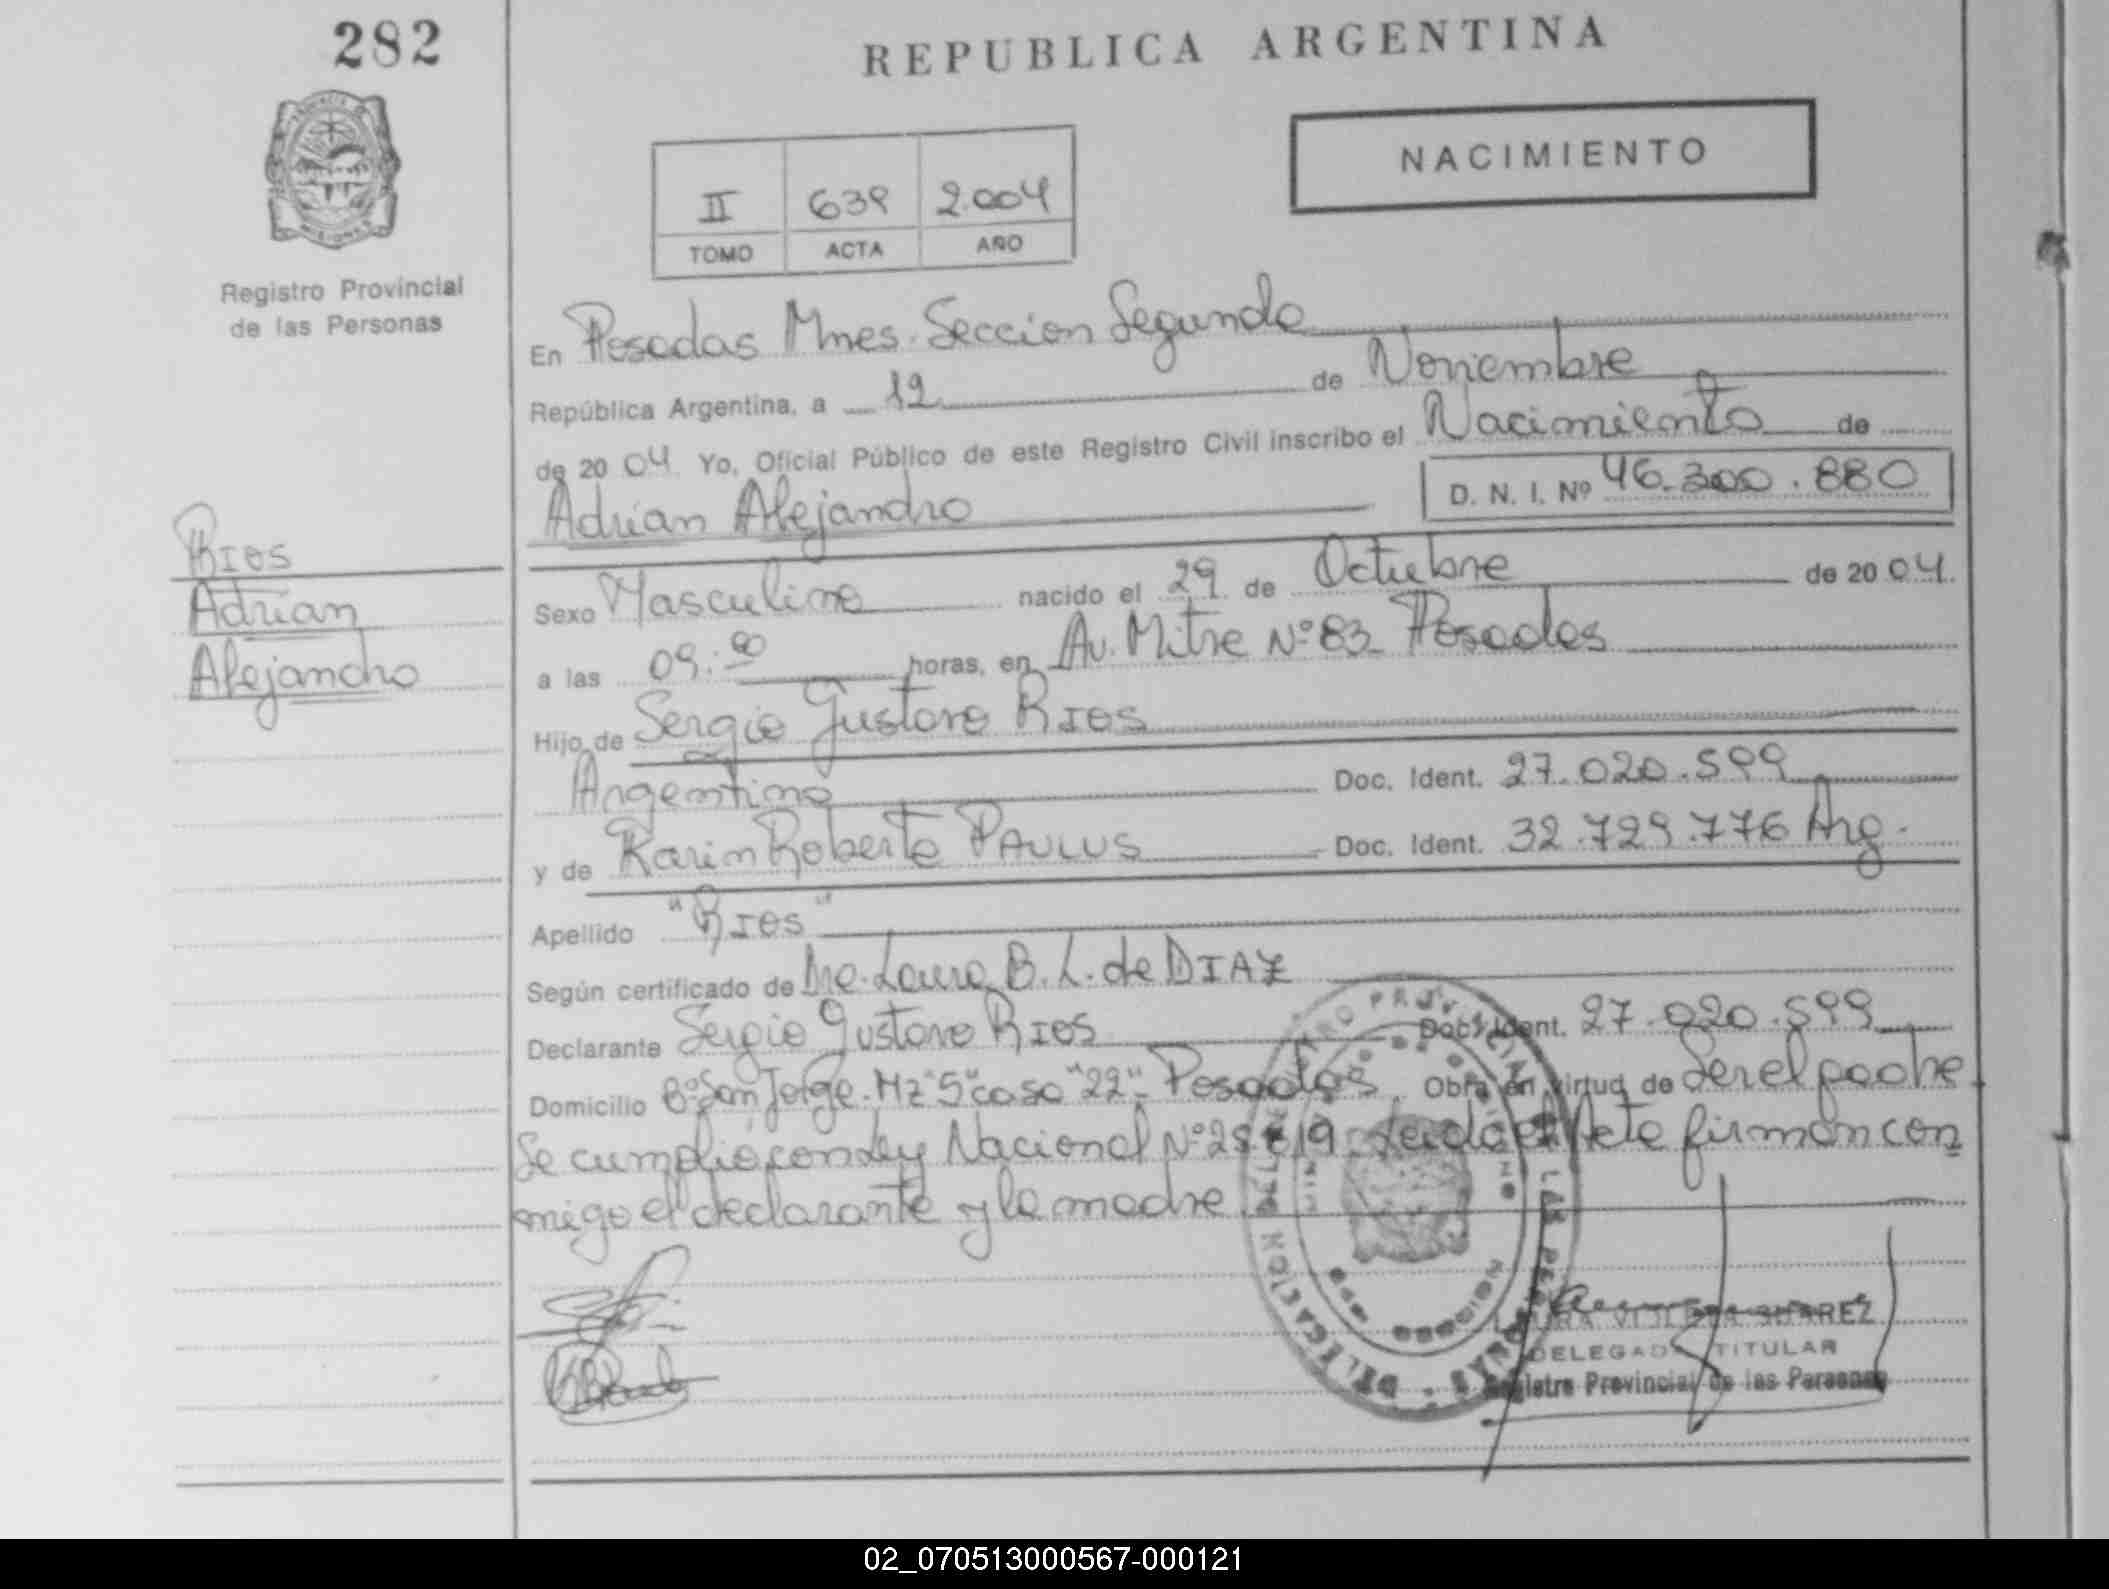 282
REPUBLICA ARGENTINA
NACIMIENTO
II 639 2.004
TOMO ACTA AÑO
Registro Provincial
de las Personas
En Posadas Mnes. Seccion Segunda
República Argentina, a 12 de Noviembre
de 20 04 Yo, Oficial Público de este Registro Civil inscribo el Nacimiento de
Adrian Alejandro D. N. I. Nº 46.300.880
Rios
Adrian
Alejandro
Sexo Masculino nacido el 29 de Octubre de 20 04.
a las 09:00 horas, en Av. Mitre Nº 83 Posadas
Hijo de Sergio Gustavo RIOS
Argentino Doc. Ident. 27.020.599
y de Karin Roberta PAULUS Doc. Ident. 32.729.776 Arg.
Apellido "RIOS"
Según certificado de Dra. Laura B. L. de DIAZ
Declarante Sergio Gustavo RIOS Doc. Ident. 27.020.599
Domicilio Bº San Jorge. Mz "5" casa "22" - Posadas. Obra en virtud de ser el padre
Se cumplió con Ley Nacional Nº Leida el Acta firman con
migo el declarante y la madre
SUAREZ
DELEGADA TITULAR
Registro Provincial de las Personas
02_070513000567-000121